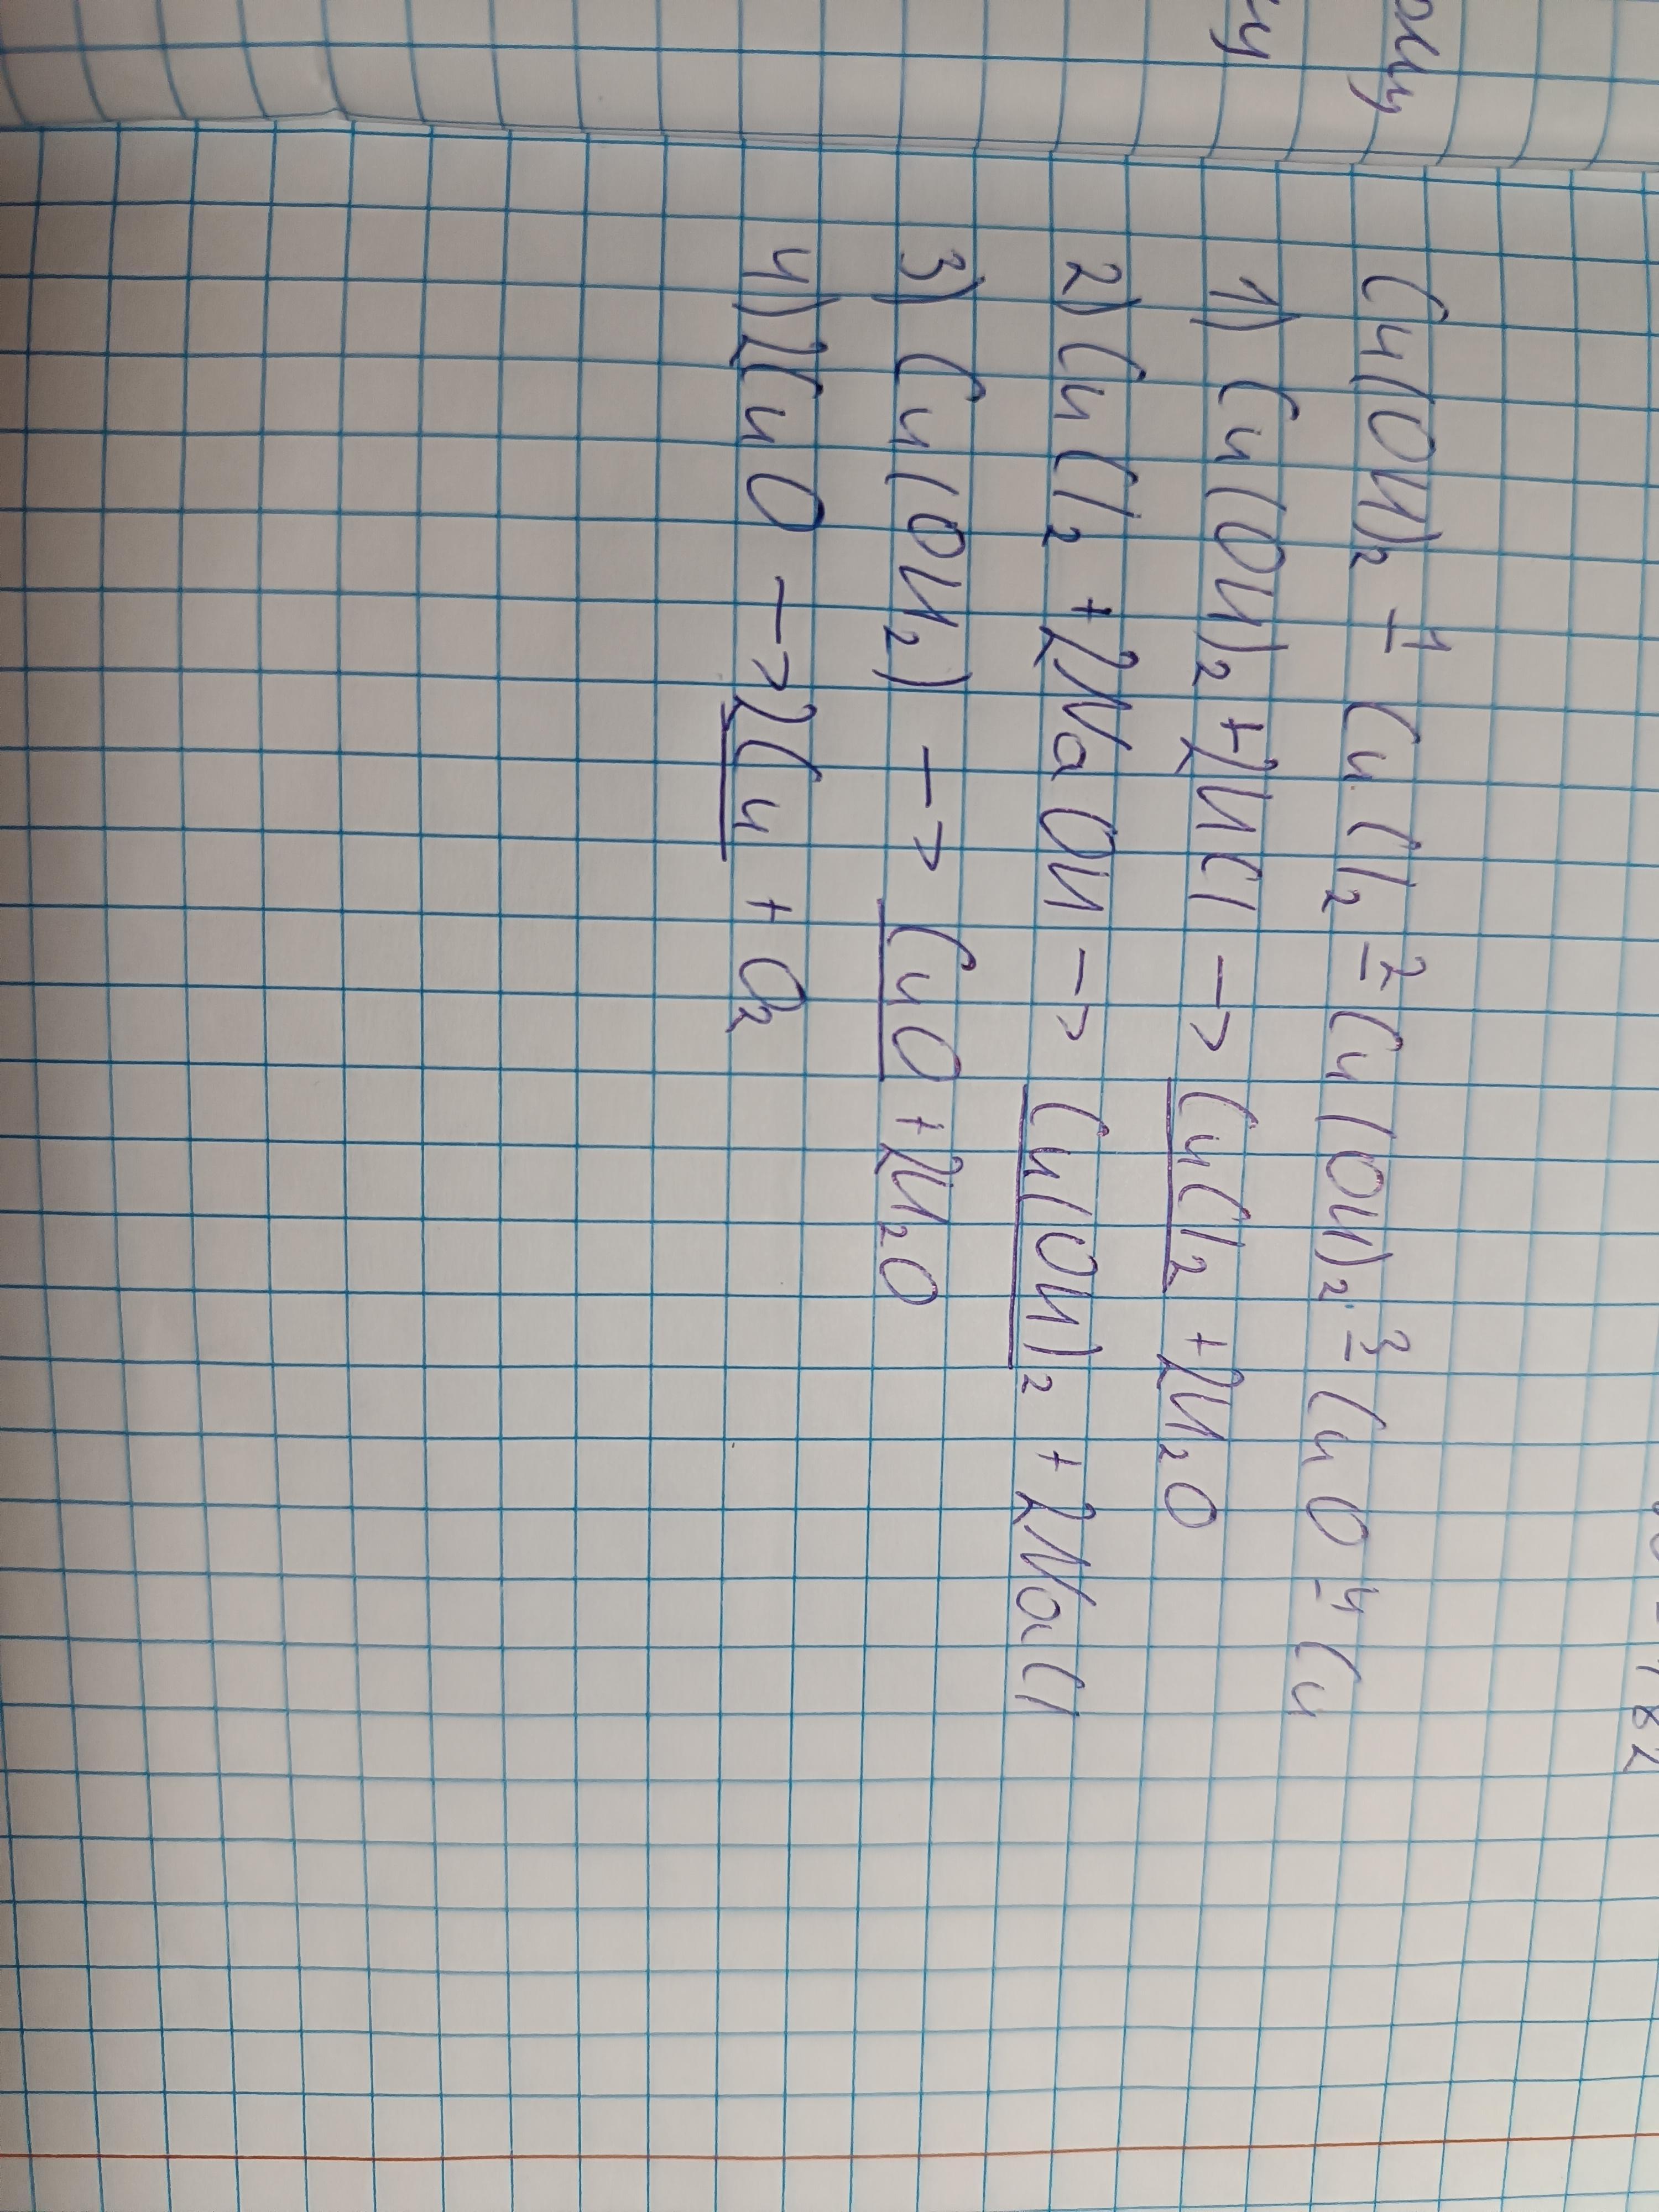 Cu(OH)₂ -1 CuCl₂ -2 Cu(OH)₂ -3 CuO -4 Cu
1) Cu(OH)₂ + 2HCl -> CuCl₂ + 2H₂O
2) CuCl₂ + 2NaOH -> Cu(OH)₂ + 2NaCl
3) Cu(OH₂) -> CuO + 2H₂O
4) 2CuO -> 2Cu + O₂